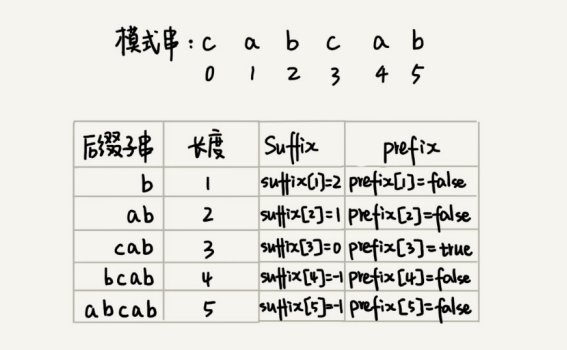 模式串: c a b c a b
0 1 2 3 4 5
后缀子串 长度 Suffix prefix
b 1 suffix[1]=2 prefix[1]=false
ab 2 suffix[2]=1 prefix[2]=false
cab 3 suffix[3]=0 prefix[3]=true
bcab 4 suffix[4]=-1 prefix[4]=false
abcab 5 suffix[5]=-1 prefix[5]=false